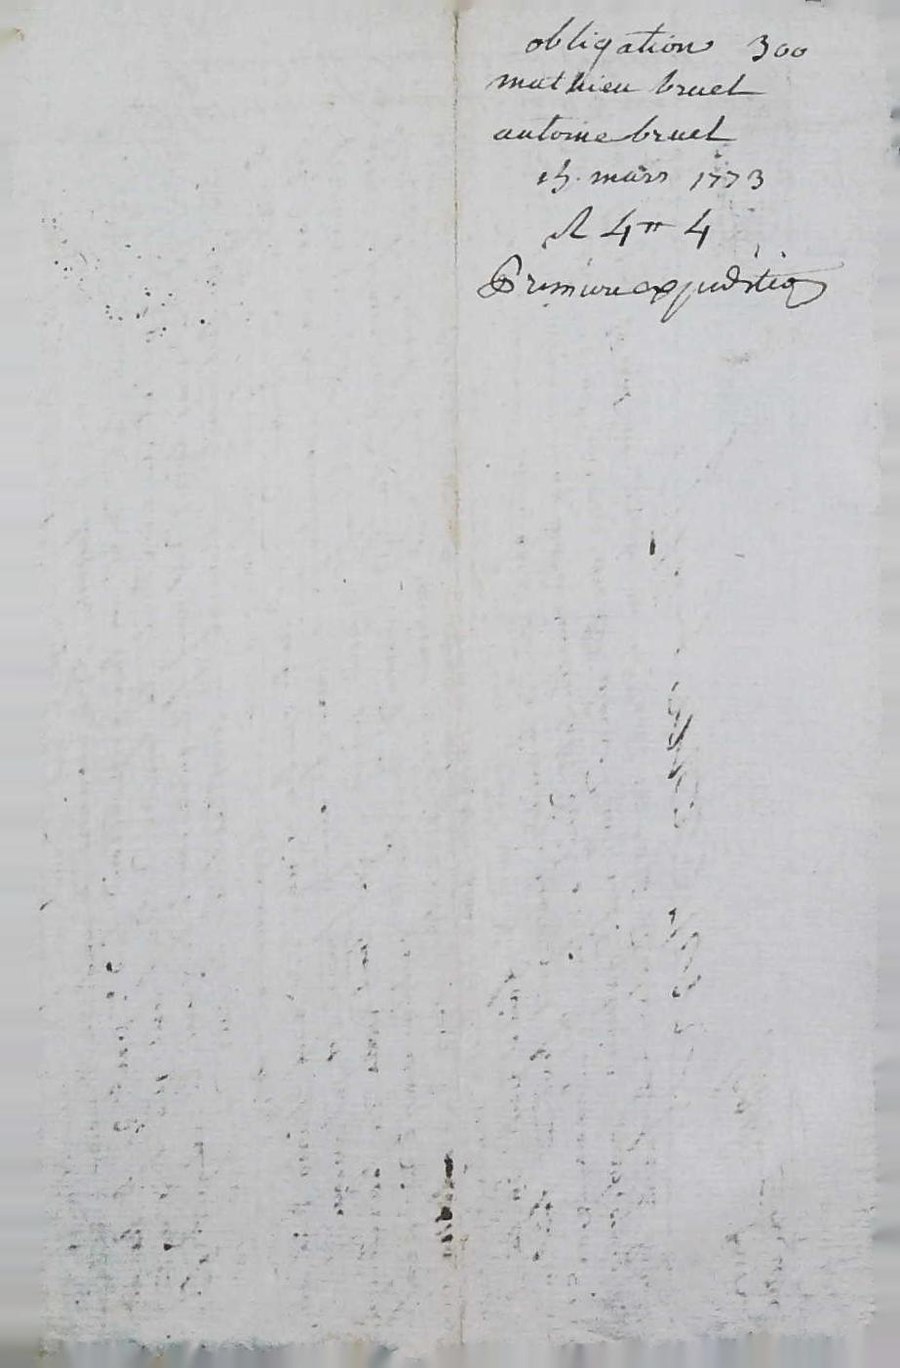 obligation 300
mathieu bruel
antoine bruel
15 mars 1773
R 4" 4
Premiere expedition